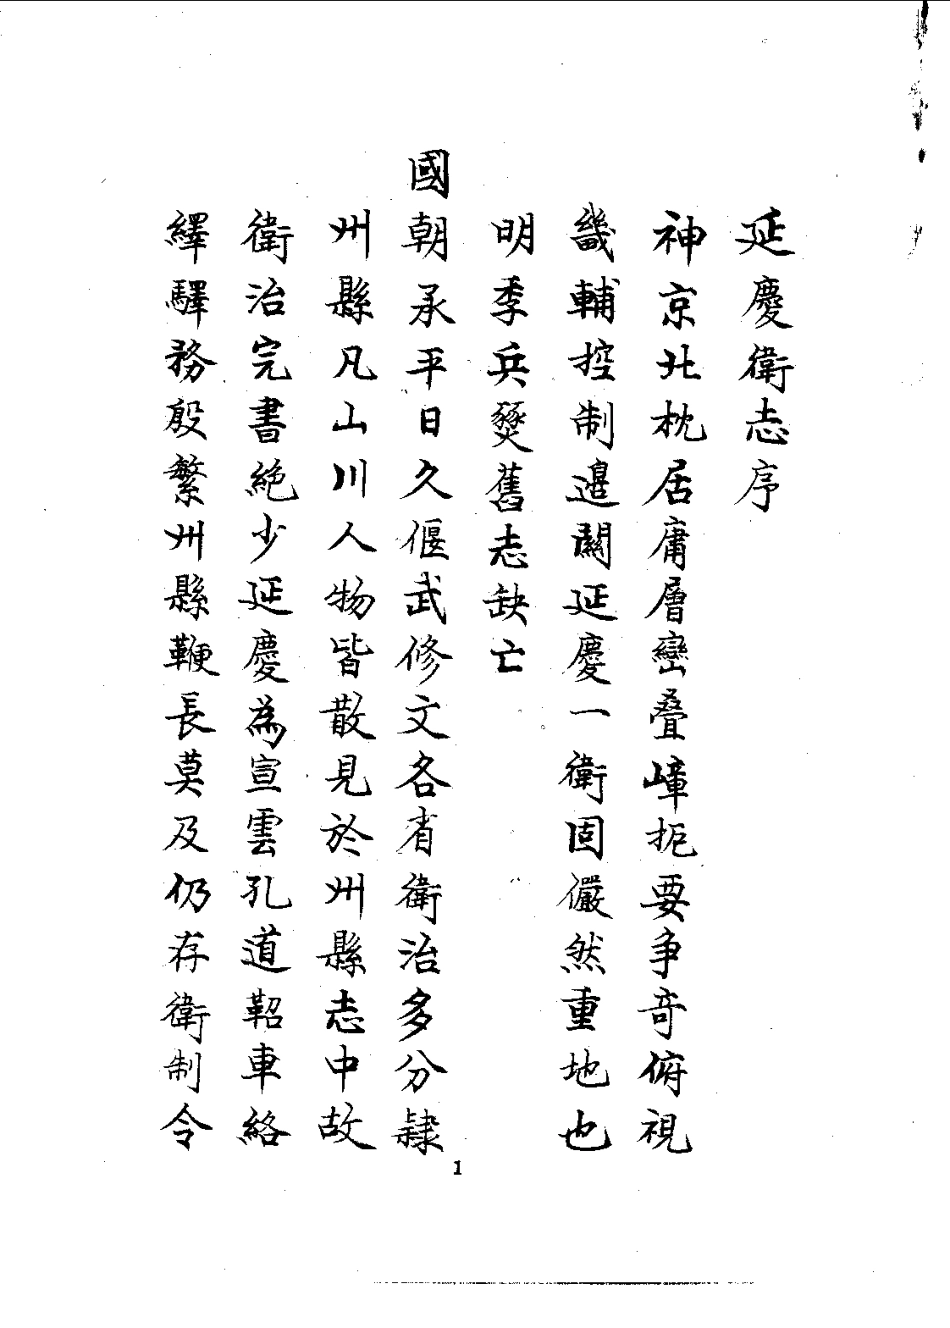 延慶衛志序
神京北枕居庸層巒叠嶂扼要争奇俯視
畿輔控制邊關延慶一衛固儼然重地也
明季兵燹舊志缺亡
國朝承平日久偃武修文各省衛治多分隸
州縣凡山川人物皆散見於州縣志中故
衛治完書絶少延慶為宣雲孔道軺車絡
繹驛務殷繁州縣鞭長莫及仍存衛制令
1